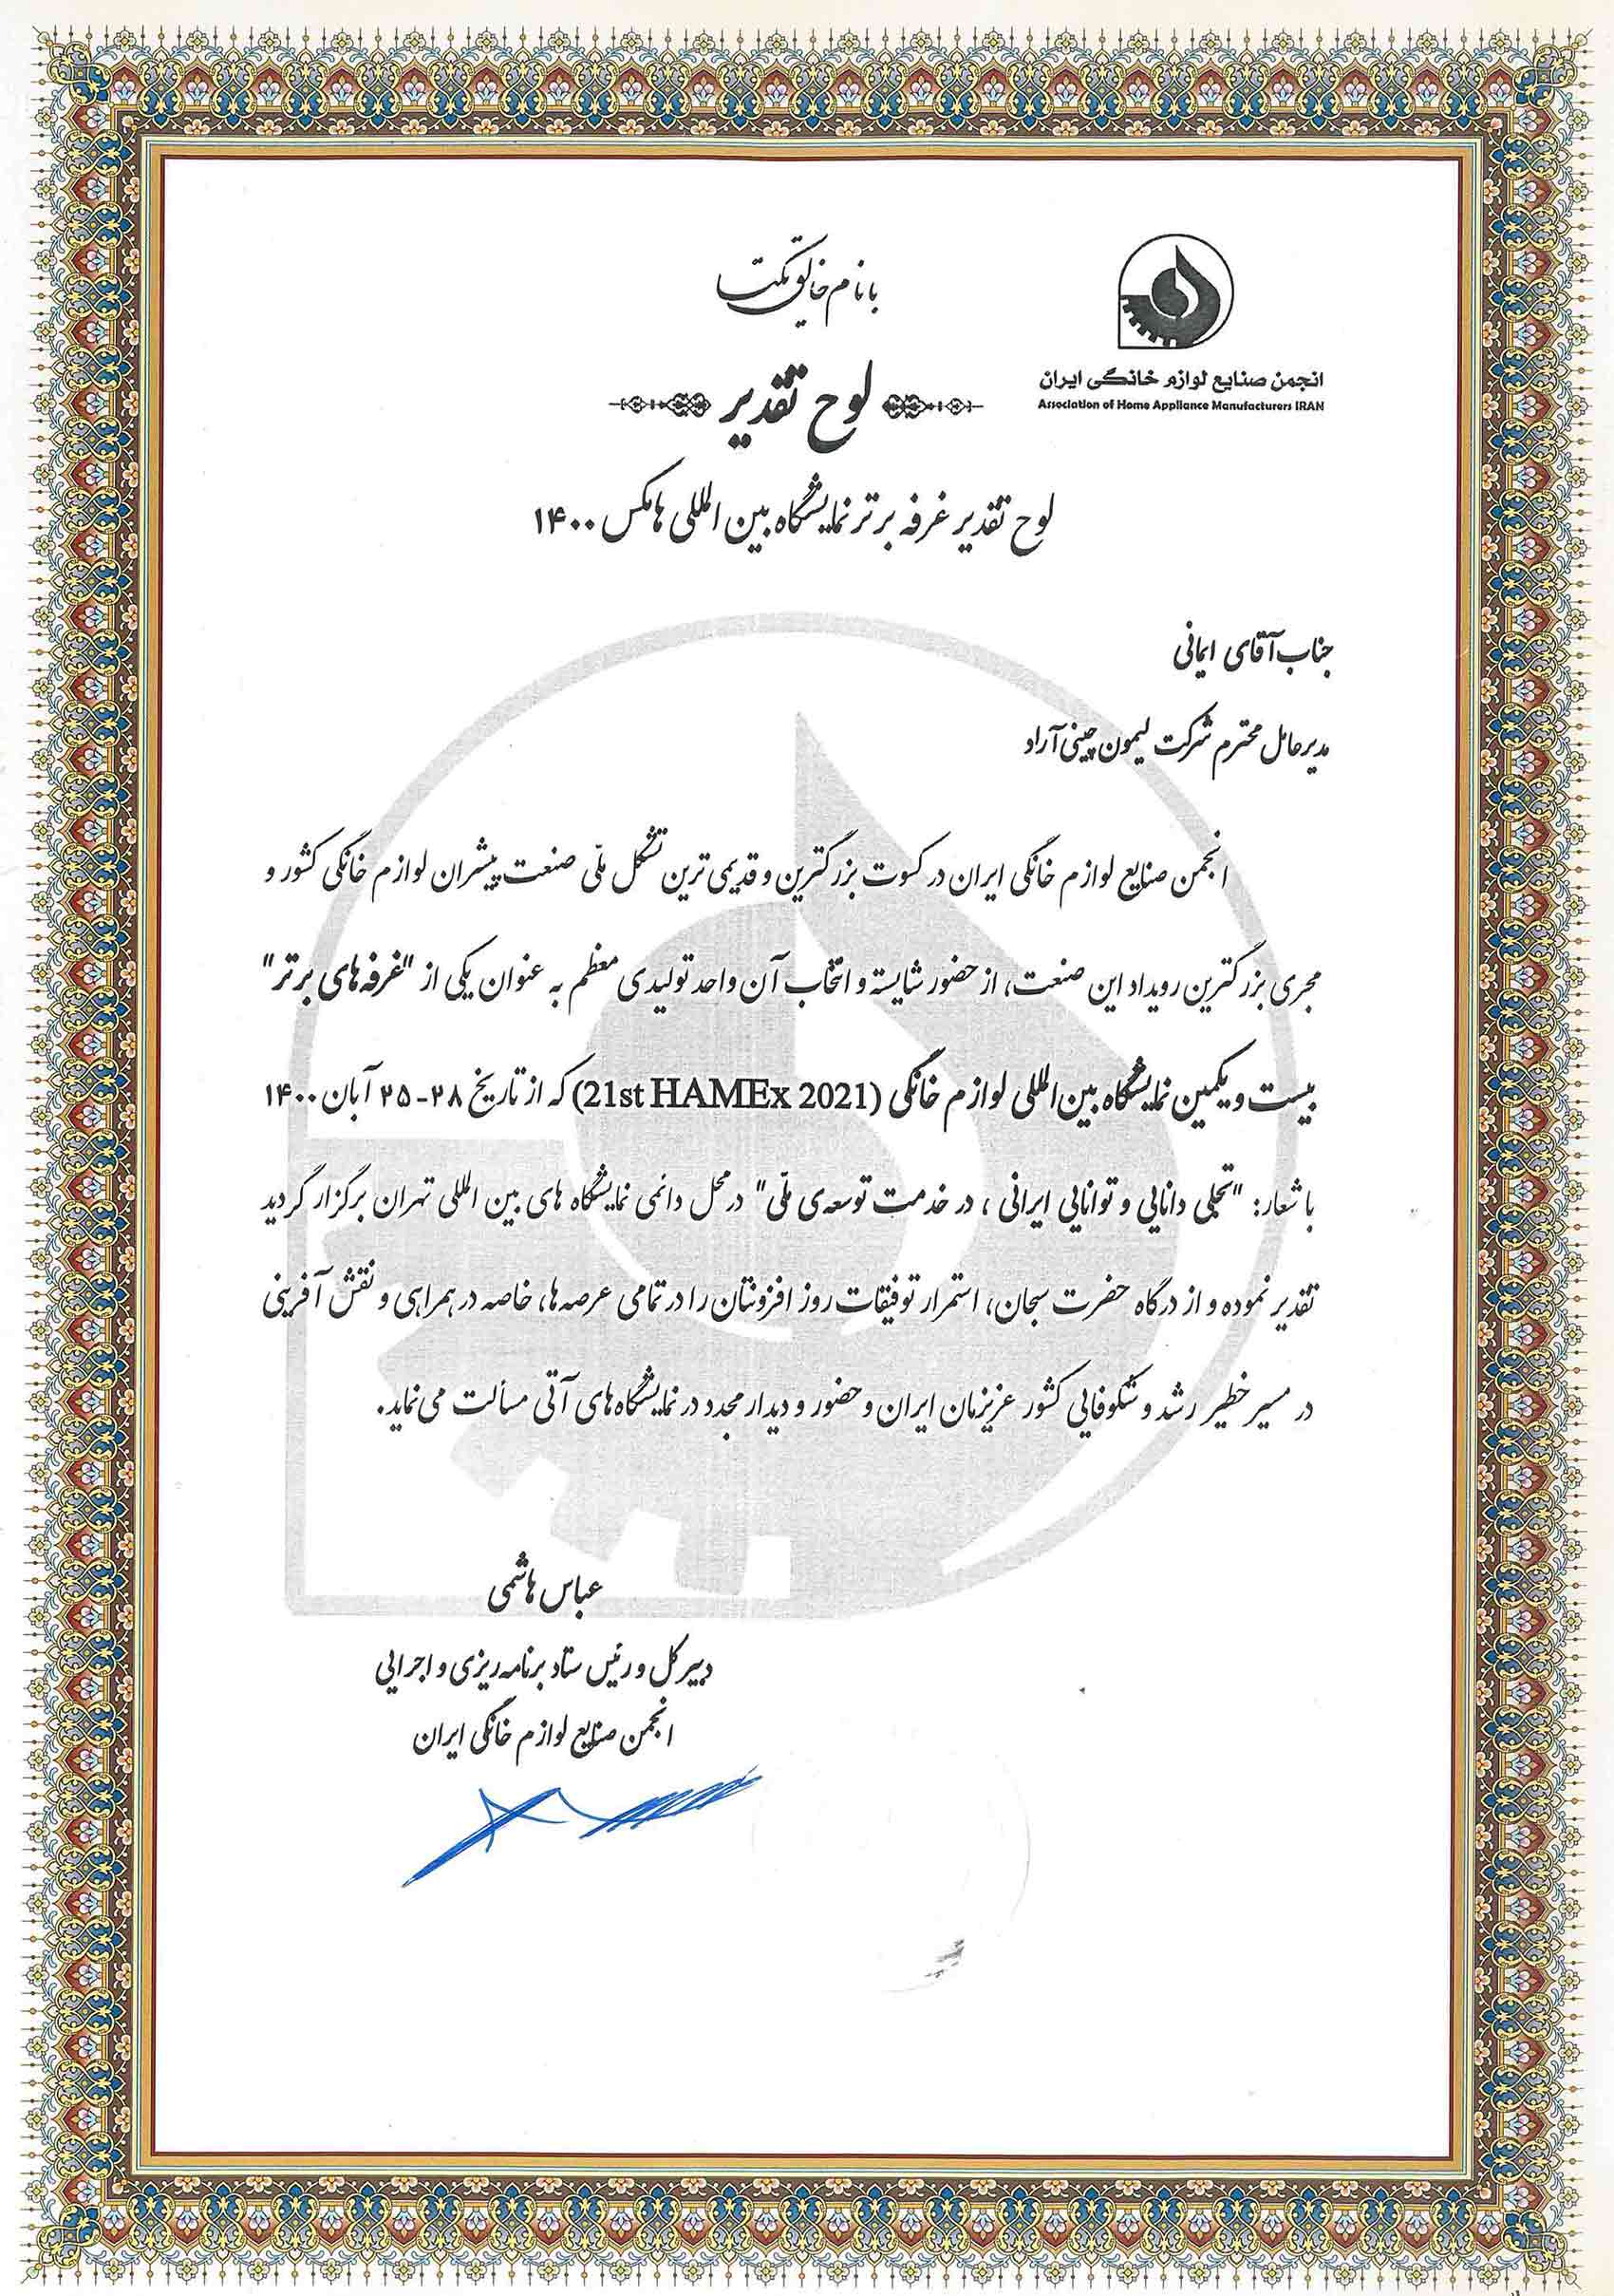 با نام خالق یکتا
انجمن صنایع لوازم خانگی ایران
Association of Home Appliance Manufacturers IRAN
لوح تقدیر
لوح تقدیر غرفه برتر نمایشگاه بین المللی هامکس ۱۴۰۰
جناب آقای ایمانی
مدیرعامل محترم شرکت لیمون چینی آراد
انجمن صنایع لوازم خانگی ایران در کسوت بزرگترین و قدیمی‌ترین تشکل ملّی صنعت پیشران لوازم خانگی کشور و
مجری بزرگترین رویداد این صنعت، از حضور شایسته و انتخاب آن واحد تولیدی معظم به عنوان یکی از "غرفه‌های برتر"
بیست و یکمین نمایشگاه بین‌المللی لوازم خانگی (21st HAMEx 2021) که از تاریخ ۲۸-۲۵ آبان ۱۴۰۰
با شعار: "تجلی دانایی و توانایی ایرانی ، در خدمت توسعه‌ی ملّی" در محل دائمی نمایشگاه های بین المللی تهران برگزار گردید
تقدیر نموده و از درگاه حضرت سبحان، استمرار توفیقات روز افزونتان را در تمامی عرصه‌ها، خاصه در همراهی و نقش آفرینی
در مسیر خطیر رشد و شکوفایی کشور عزیزمان ایران و حضور و دیدار مجدد در نمایشگاه‌های آتی مسألت می‌نماید.
عباس هاشمی
دبیر کل و رئیس ستاد برنامه‌ریزی و اجرایی
انجمن صنایع لوازم خانگی ایران